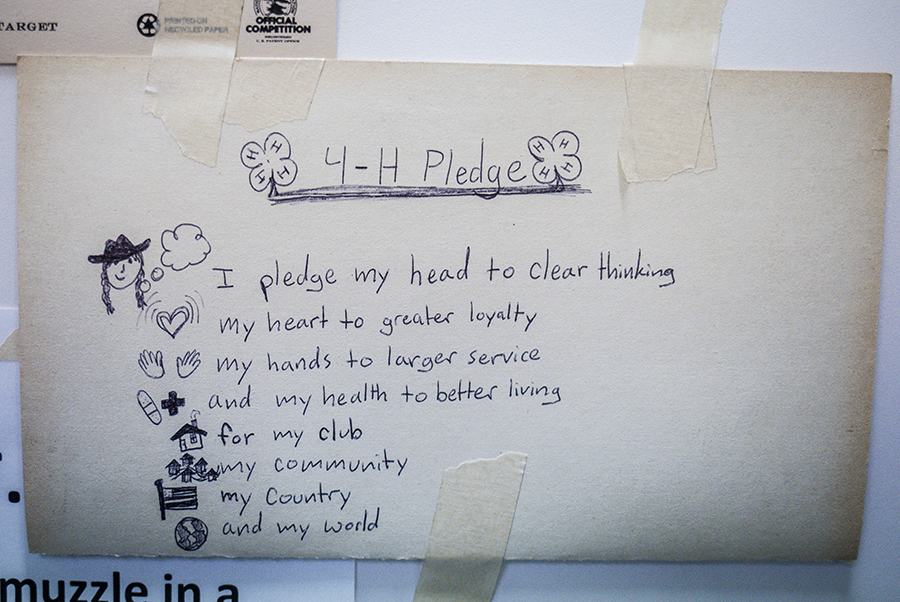 TARGET
PRINTED ON
RECYCLED PAPER
OFFICIAL
COMPETITION
U.S. PATENT OFFICE
H H H H
4-H Pledge
H H H H
I pledge my head to clear thinking
my heart to greater loyalty
my hands to larger service
and my health to better living
for my club
my community
my Country
and my world
muzzle in a